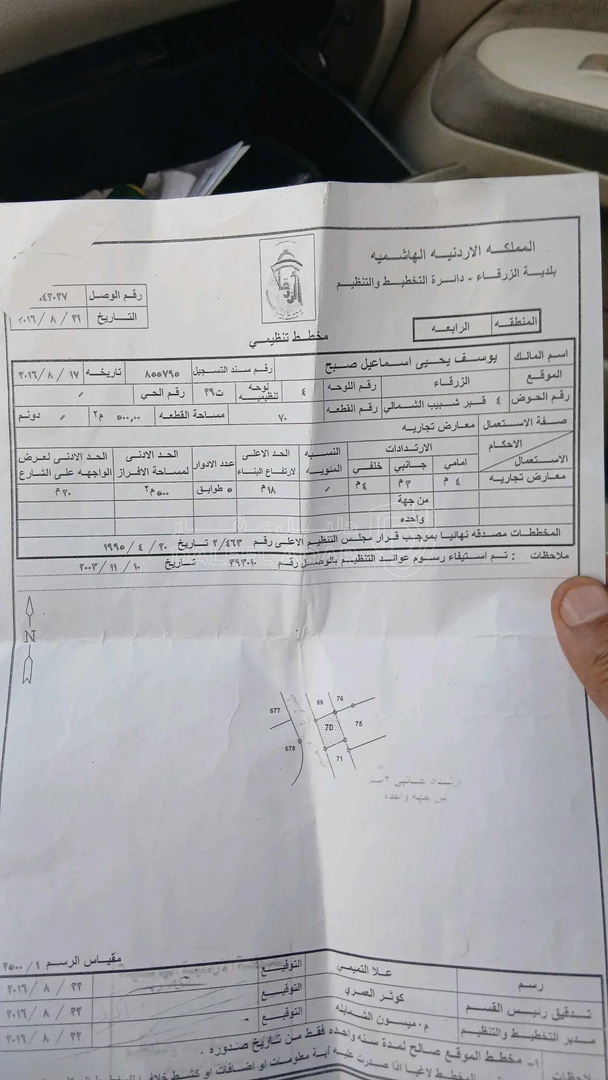 المملكه الاردنيه الهاشميه
بلدية الزرقاء - دائرة التخطيط والتنظيم
رقم الوصل ٠٤٢٠٢٧
التاريخ ٢٠١٦ / ٨ / ٢١
المنطقه الرابعه
مخطط تنظيمي
اسم المالك يوسف يحيى اسماعيل صبح رقم سند التسجيل ٨٥٥٧٩٥ تاريخه ٢٠١٦ / ٨ / ١٧
الموقع الزرقاء رقم اللوحه ٤ لوحه تنظيميه ت٣٩ رقم الحي
رقم الحوض ٤ قبر شبيب الشمالي رقم القطعه ٧٠ مساحة القطعه ٥٠٠,٠٠ م٢ دونم
صفة الاستعمال معارض تجاريه
الاحكام
الاستعمال
الارتدادات
امامي جانبي خلفي
النسبه المئويه
الحد الاعلى لارتفاع البناء
عدد الادوار
الحد الادنى لمساحة الافراز
الحد الادنى لعرض الواجهه على الشارع
معارض تجاريه ٤ م ٣ م ٤ م ١٨ م ٥ طوابق ٥٠٠ م٢ ٢٠ م
من جهة
واحده
المخططات مصدقه نهائيا بموجب قرار مجلس التنظيم الاعلى رقم ٢/٤٦٣ تاريخ ٢٠ / ٤ / ١٩٩٥
ملاحظات : تم استيفاء رسوم عوائد التنظيم بالوصل رقم ٣٩٣٠١٠ تاريخ ١٠ / ١١ / ٢٠٠٣
N
677
69
76
70
75
678
71
ارتداد جانبي ٣متر
من جهه واحده
مقياس الرسم ١ / ٢٥٠٠
رسم علا التميمي التوقيع ٢٢ / ٨ / ٢٠١٦
تدقيق رئيس القسم كوثر العمري التوقيع ٢٢ / ٨ / ٢٠١٦
مدير التخطيط والتنظيم م٠ميسون الشمايله التوقيع ٢٢ / ٨ / ٢٠١٦
ملاحظات ١- مخطط الموقع صالح لمدة سنه واحده فقط من تاريخ صدوره ٠
المخطط لاغيا اذا صدرت عليه أية معلومات او اضافات او كشط